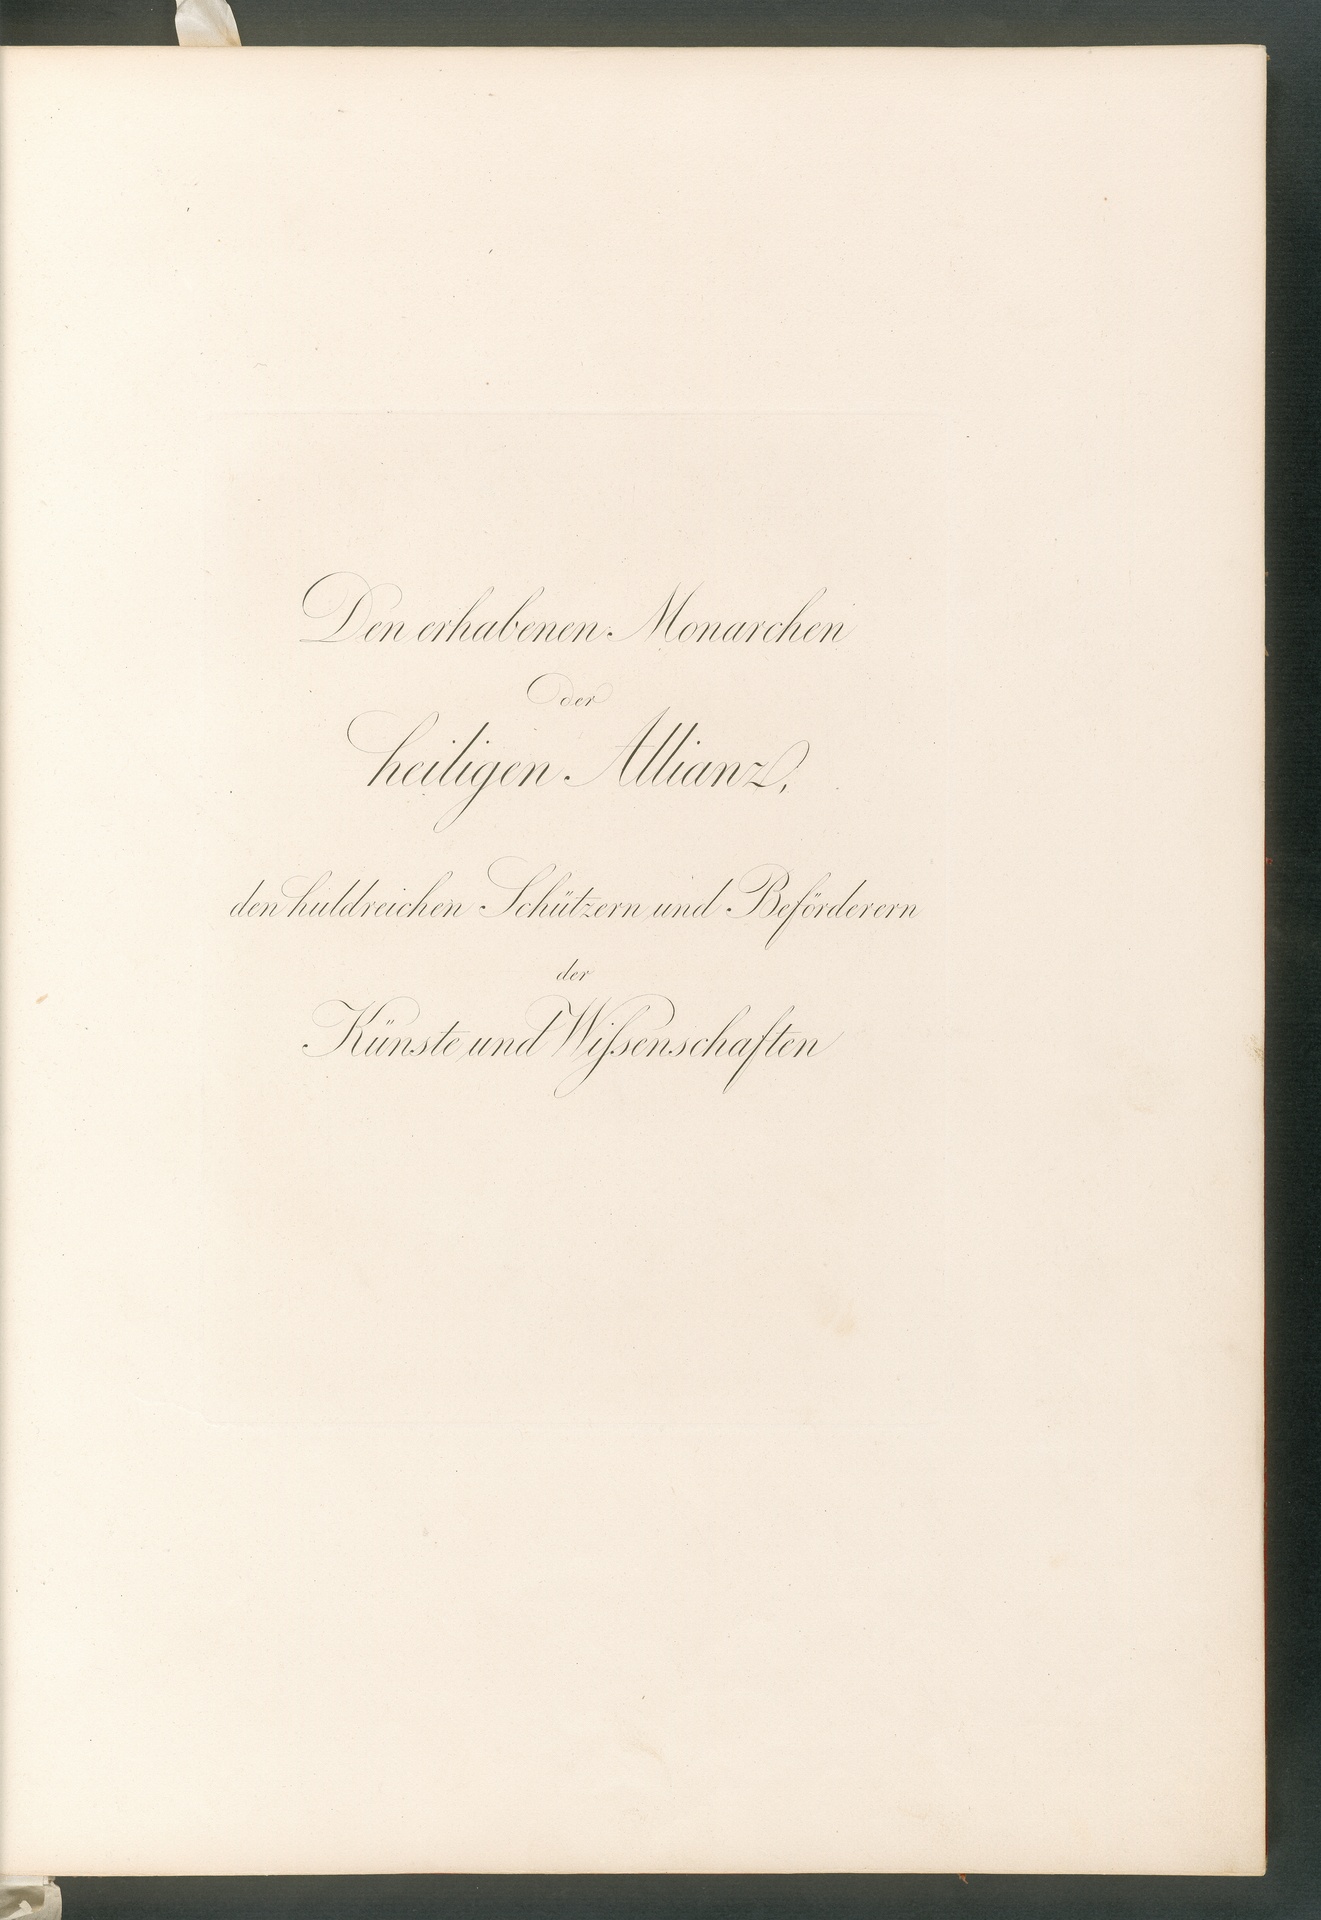 Den erhabenen Monarchen
der
heiligen Allianz,
den huldreichen Schützern und Beförderern
der
Künste und Wißenschaften